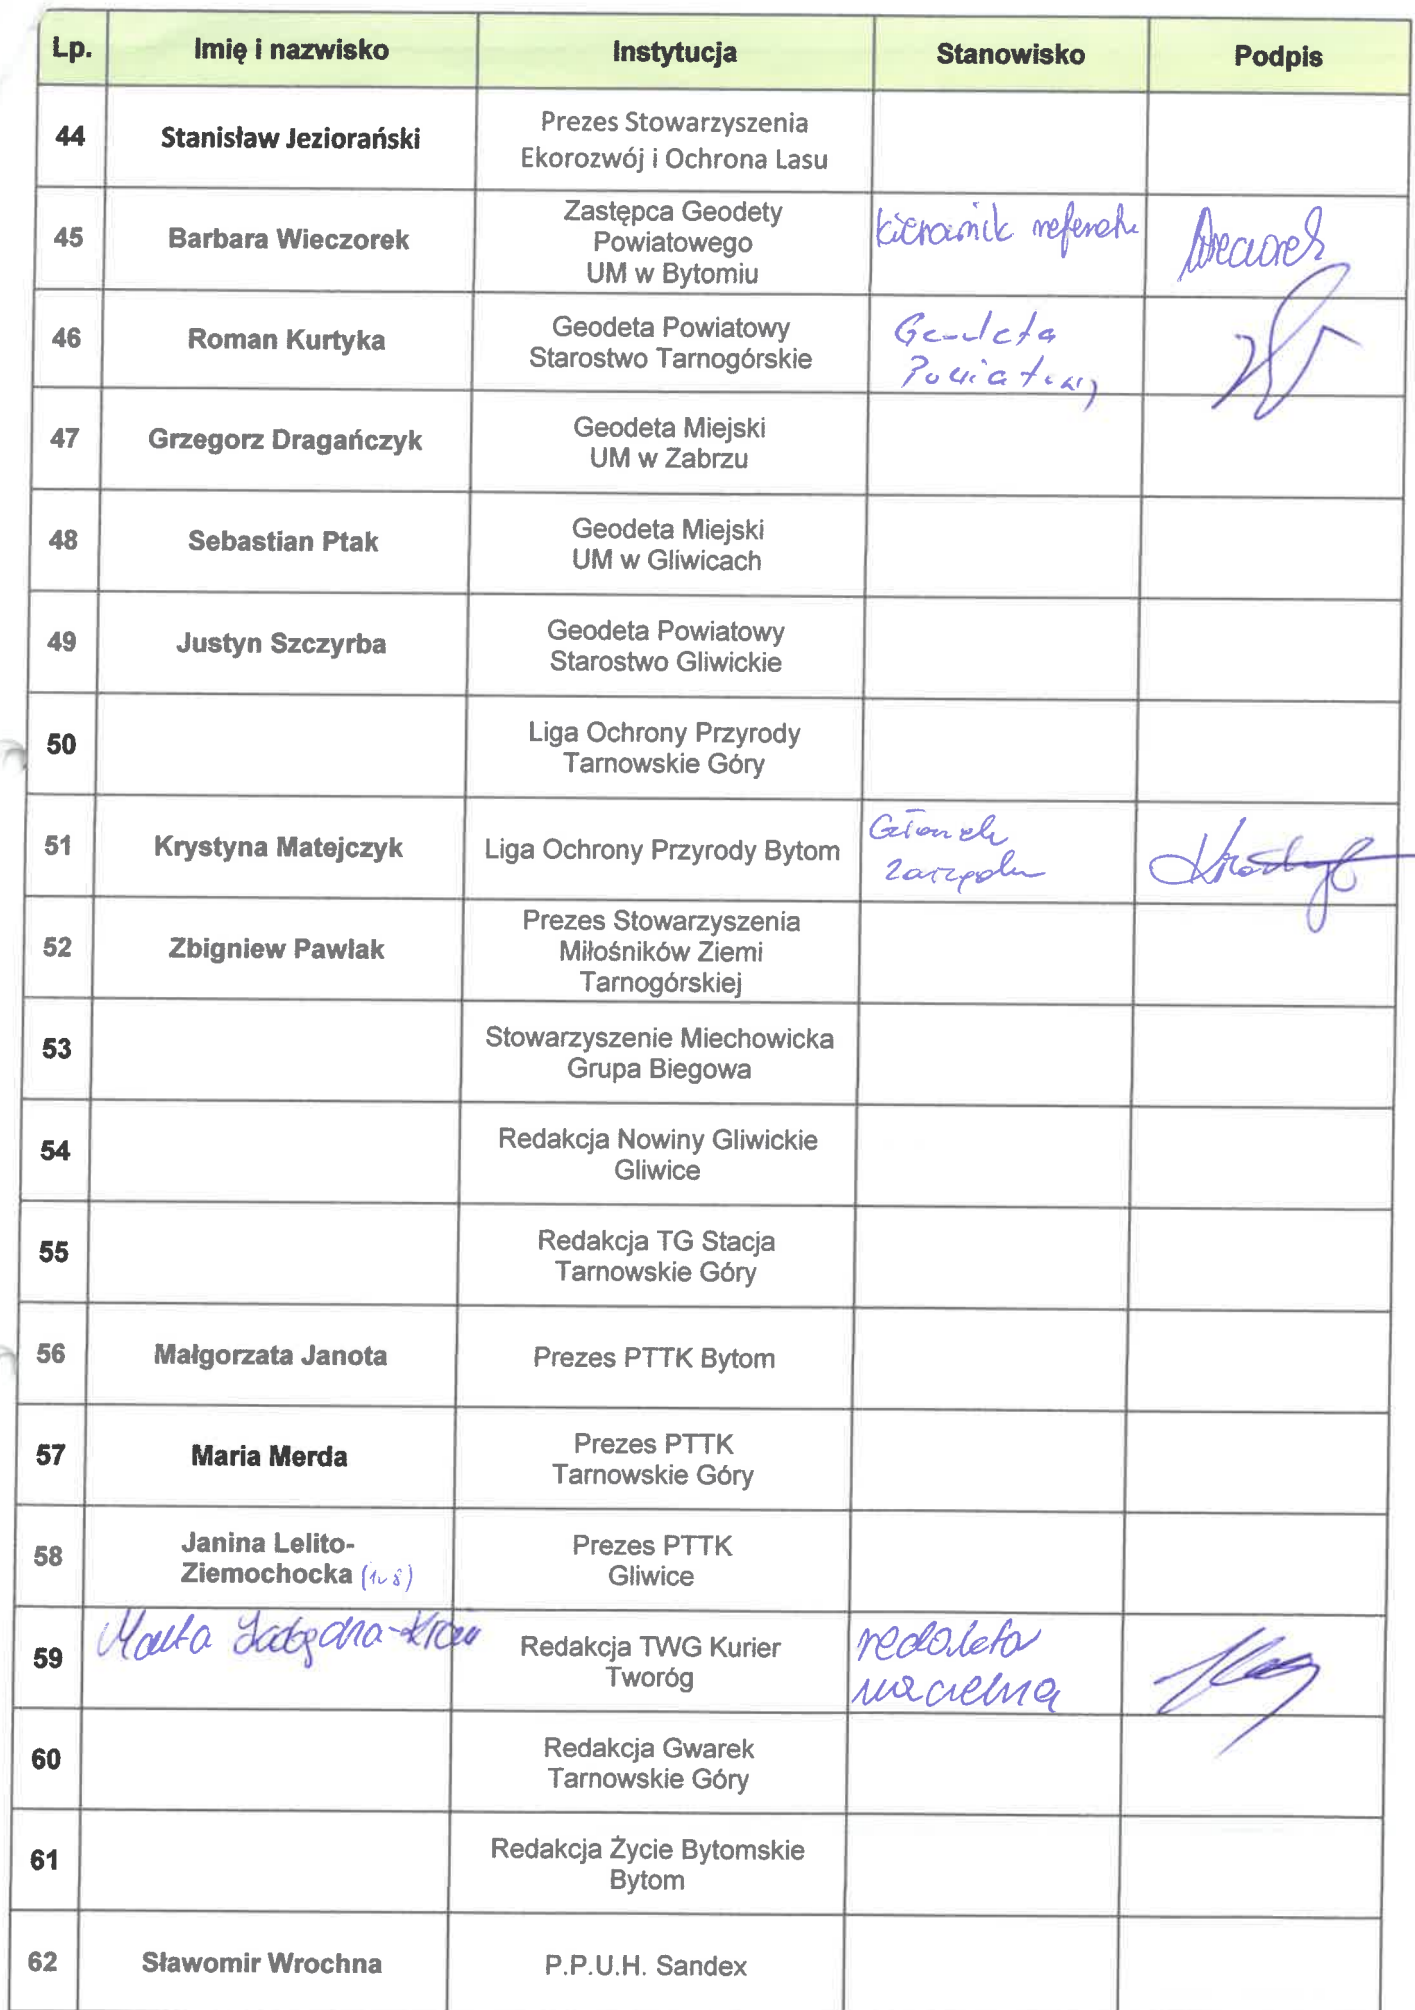 Lp. Imię i nazwisko Instytucja Stanowisko Podpis
44 Stanisław Jeziorański Prezes Stowarzyszenia
Ekorozwój i Ochrona Lasu
45 Barbara Wieczorek Zastępca Geodety
Powiatowego
UM w Bytomiu
kierownik referatu
46 Roman Kurtyka Geodeta Powiatowy
Starostwo Tarnogórskie
Geodeta
Powiatowy
47 Grzegorz Dragańczyk Geodeta Miejski
UM w Zabrzu
48 Sebastian Ptak Geodeta Miejski
UM w Gliwicach
49 Justyn Szczyrba Geodeta Powiatowy
Starostwo Gliwickie
50 Liga Ochrony Przyrody
Tarnowskie Góry
51 Krystyna Matejczyk Liga Ochrony Przyrody Bytom
Członek
Zarządu
52 Zbigniew Pawlak Prezes Stowarzyszenia
Miłośników Ziemi
Tarnogórskiej
53 Stowarzyszenie Miechowicka
Grupa Biegowa
54 Redakcja Nowiny Gliwickie
Gliwice
55 Redakcja TG Stacja
Tarnowskie Góry
56 Małgorzata Janota Prezes PTTK Bytom
57 Maria Merda Prezes PTTK
Tarnowskie Góry
58 Janina Lelito-
Ziemochocka
Prezes PTTK
Gliwice
59 Marta Redakcja TWG Kurier
Tworóg
redaktor
naczelna
60 Redakcja Gwarek
Tarnowskie Góry
61 Redakcja Życie Bytomskie
Bytom
62 Sławomir Wrochna P.P.U.H. Sandex